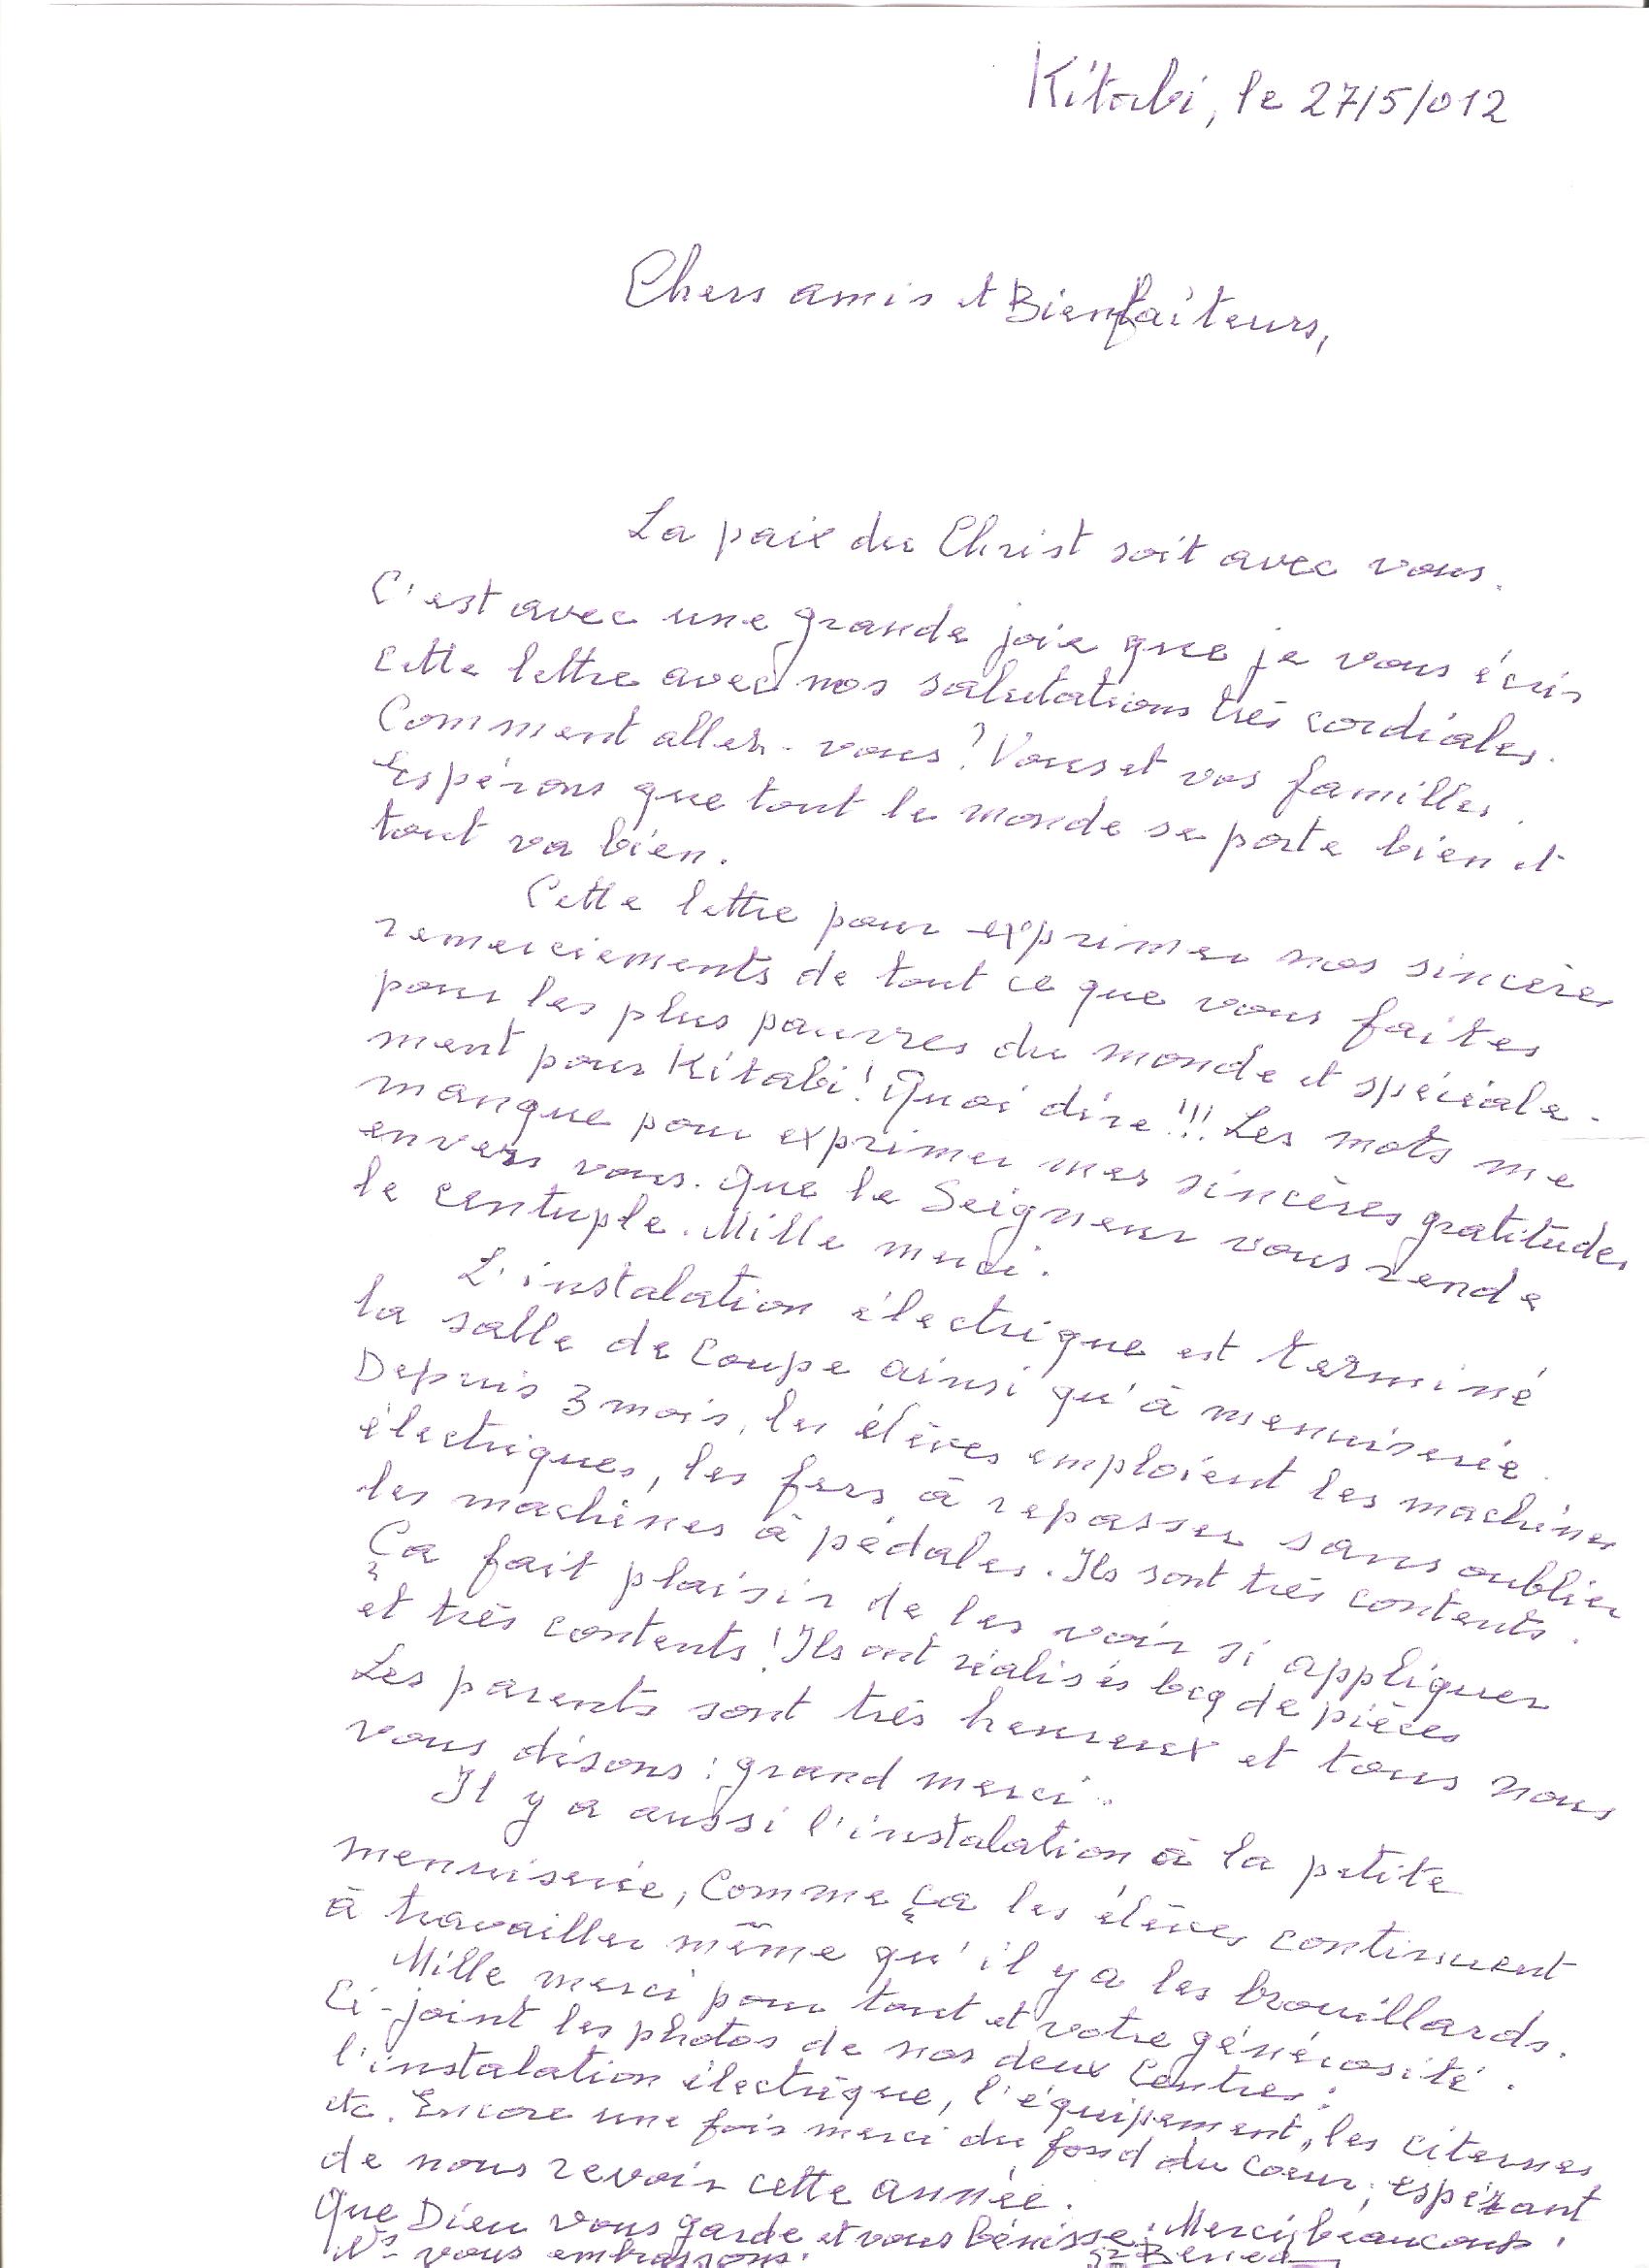 Kitabi, le 27/5/012
Chers amis et Bienfaiteurs,
La paix du Christ soit avec vous.
C'est avec une grande joie que je vous écris
cette lettre avec nos salutations très cordiales.
Comment allez-vous? Vous et vos familles.
Espérons que tout le monde se porte bien et
tout va bien.
Cette lettre pour exprimer nos sincères
remerciements de tout ce que vous faites
pour les plus pauvres du monde et spéciale-
ment pour Kitabi! Quoi dire!!! Les mots me
manque pour exprimer mes sincères gratitudes
envers vous. Que le Seigneur vous rende
le centuple. Mille merci.
L'instalation électrique est terminé
la salle de coupe ainsi qu'à menuiserie.
Depuis 3 mois, les élèves emploient les machines
électriques, les fers à repasser sans oublier
les machines à pédales. Ils sont très contents.
Ça fait plaisir de les voir si appliquer
et très contents! Ils ont réalisés bcq de pièces
Les parents sont très heureux et tous nous
vous disons: grand merci.
Il y a aussi l'instalation à la petite
menuiserie, Comme ça les élèves continuent
à travailler même qu'il y a les brouillards.
Mille merci pour tout et votre générosité.
Ci-joint les photos de nos deux Centres:
l'instalation électrique, l'équipement, les citernes
etc. Encore une fois merci du fond du coeur, espérant
de nous revoir cette année.
Que Dieu vous garde et vous bénisse! Merci beaucoup!
Ns vous embrassons.